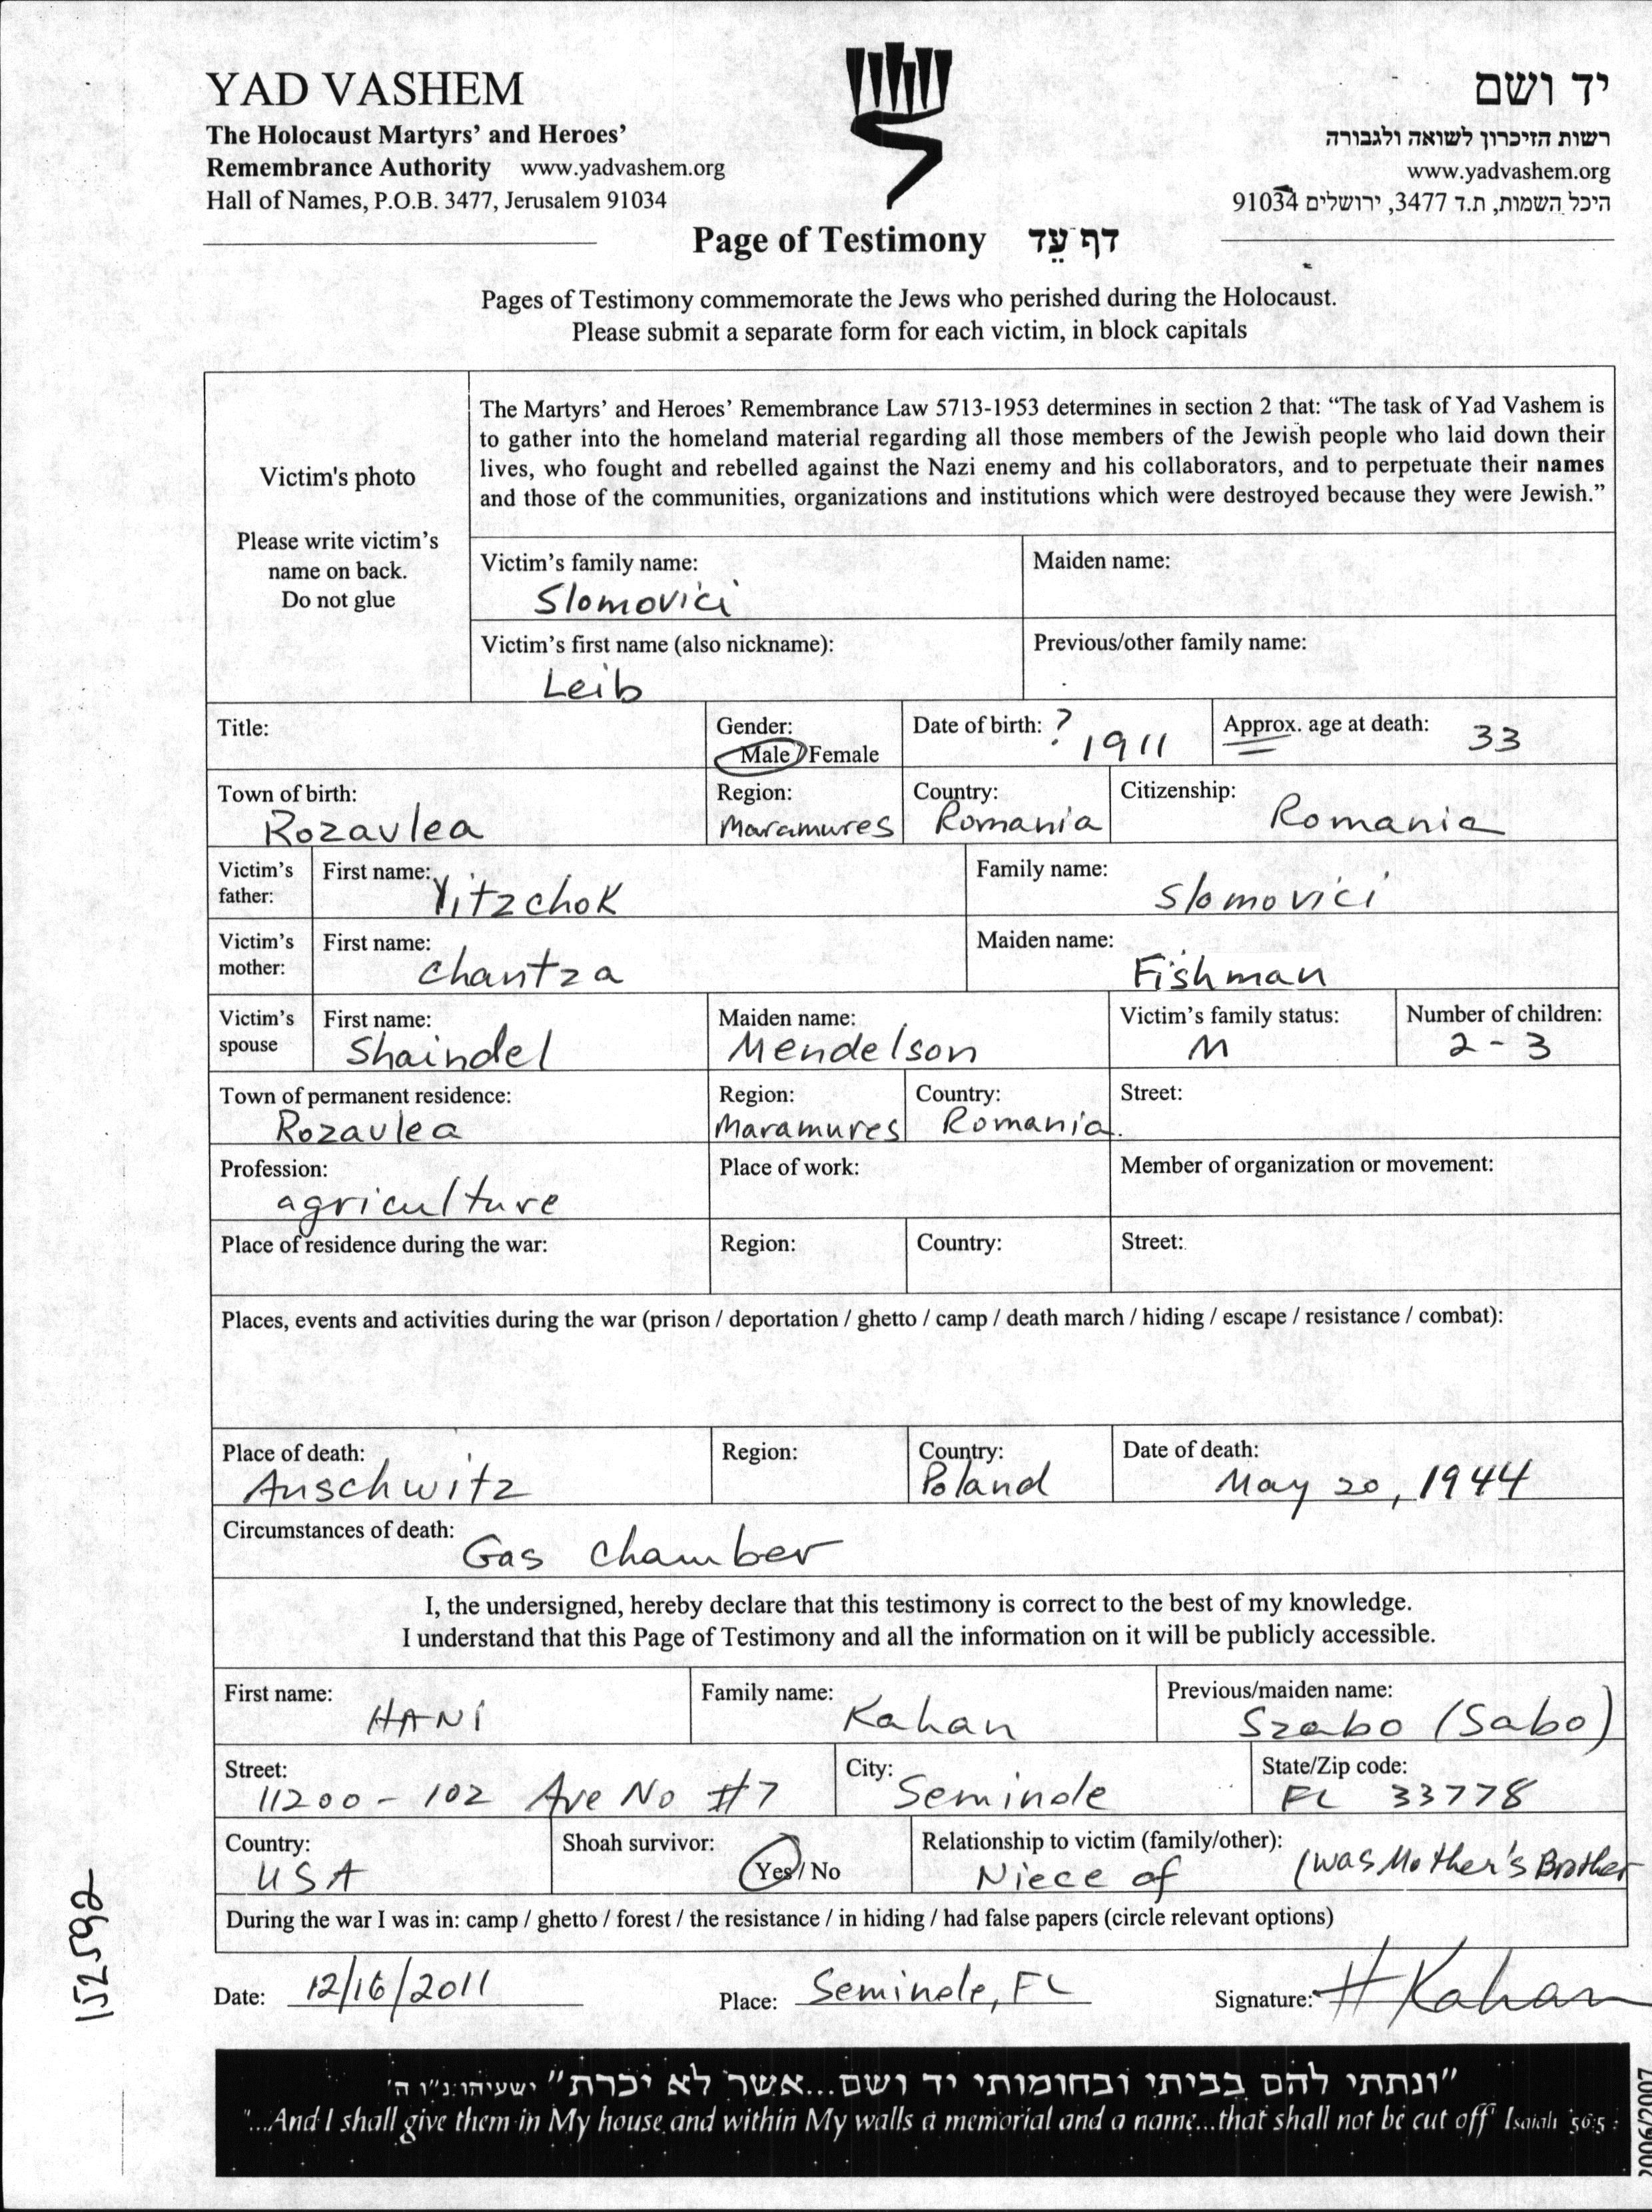 YAD VASHEM
The Holocaust Martyrs' and Heroes'
Remembrance Authority www.yadvashem.org
Hall of Names, P.O.B. 3477, Jerusalem 91034
יד ושם
רשות הזיכרון לשואה ולגבורה
www.yadvashem.org
היכל השמות, ת.ד 3477, ירושלים 91034
Page of Testimony דף עֵד
Pages of Testimony commemorate the Jews who perished during the Holocaust.
Please submit a separate form for each victim, in block capitals
Victim's photo
Please write victim's
name on back.
Do not glue
The Martyrs' and Heroes' Remembrance Law 5713-1953 determines in section 2 that: "The task of Yad Vashem is
to gather into the homeland material regarding all those members of the Jewish people who laid down their
lives, who fought and rebelled against the Nazi enemy and his collaborators, and to perpetuate their names
and those of the communities, organizations and institutions which were destroyed because they were Jewish."
Victim's family name: Maiden name:
Slomovici
Victim's first name (also nickname): Previous/other family name:
Leib
Title: Gender: Date of birth: ? 1911 Approx. age at death: 33
Male / Female
Town of birth: Region: Country: Citizenship:
Rozavlea Maramures Romania Romania
Victim's father: First name: Yitzchok Family name: Slomovici
Victim's mother: First name: Chantza Maiden name: Fishman
Victim's spouse First name: Shaindel Maiden name: Mendelson Victim's family status: M Number of children: 2 - 3
Town of permanent residence: Region: Country: Street:
Rozavlea Maramures Romania.
Profession: Place of work: Member of organization or movement:
agriculture
Place of residence during the war: Region: Country: Street:
Places, events and activities during the war (prison / deportation / ghetto / camp / death march / hiding / escape / resistance / combat):
Place of death: Region: Country: Date of death:
Auschwitz Poland May 20, 1944
Circumstances of death: Gas chamber
I, the undersigned, hereby declare that this testimony is correct to the best of my knowledge.
I understand that this Page of Testimony and all the information on it will be publicly accessible.
First name: Family name: Previous/maiden name:
HANI Kahan Szabo (Sabo)
Street: City: State/Zip code:
11200 - 102 Ave No #7 Seminole FL 33778
Country: Shoah survivor: Relationship to victim (family/other):
USA Yes / No Niece of (was Mother's Brother
During the war I was in: camp / ghetto / forest / the resistance / in hiding / had false papers (circle relevant options)
Date: 12/16/2011 Place: Seminole, FL Signature: H Kahan
"ונתתי להם בביתי ובחומותי יד ושם...אשר לא יכרת" ישעיהו נ"ו ה'
"...And I shall give them in My house and within My walls a memorial and a name...that shall not be cut off" Isaiah 56:5
152592
2006/2007